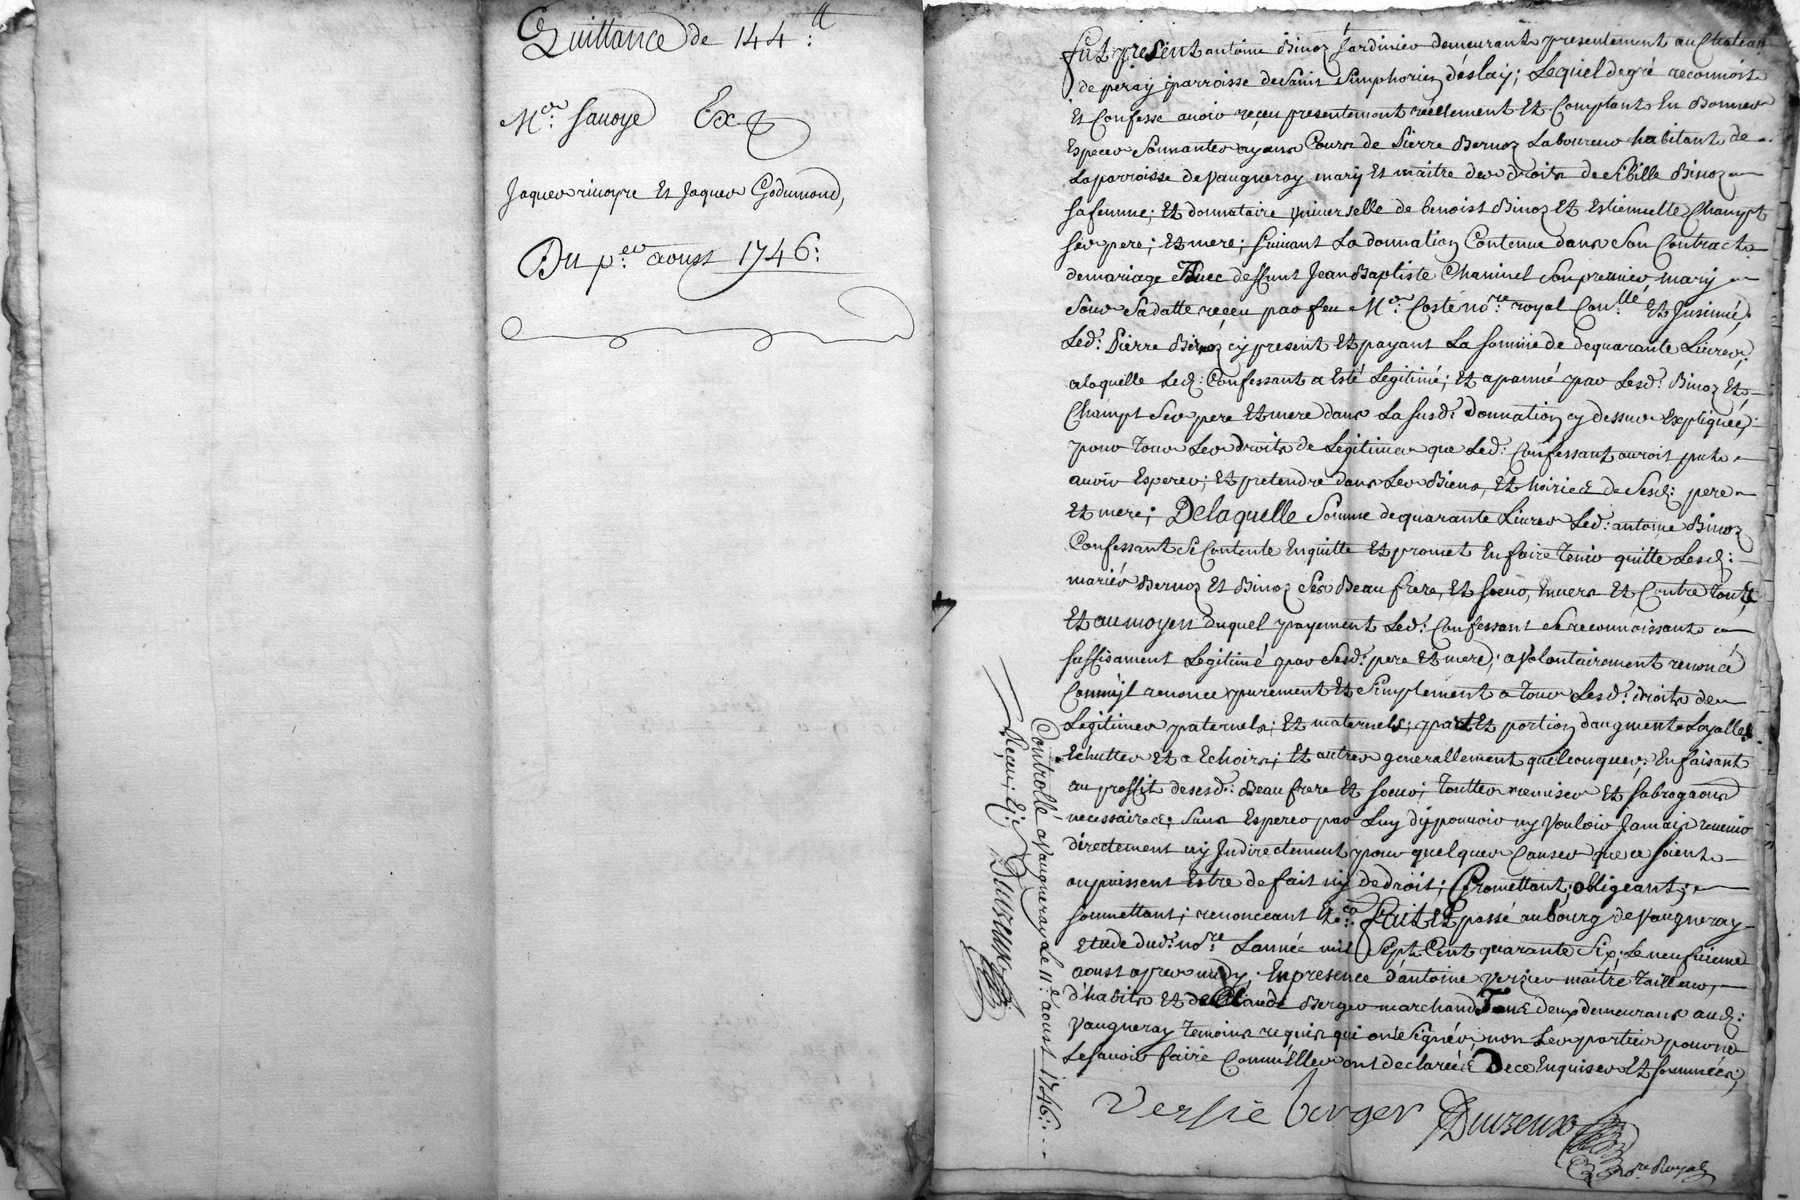 Quittance de 144:ₗₜ
Mre: Savoye Exr
Jaques rivoyre Et Jaques Godumond,
Du p:er aoust 1746:
fut present antoine Binoz Jardinier demeurant presentement au Chateau
de peray parroisse de Saint Simphorien d'Eslay; Lequel de gré reconnoit
Et Confesse avoir reçeu presentement reellement Et Comptant En Bonnes
Especes Sonnantes ayans Cours de Pierre Bernoz Laboureur habitant de
La parroisse de Vaugneray mary Et maitre des droits de Sibille Binoz
Sa femme; Et donnataire Universelle de benoist Binoz Et Estiennette Champt
Ses pere; Et mere; Suivant La donnation Contenue dans Son Contract
de mariage Avec deffunt Jean Baptiste Chaminel Son premier mary
Sous Sa datte reçeu par feu Mre: Coste nore royal Conllé Et Jnsinué,
Led: Pierre Bernoz cy present Et payant La Somme de de quarante Livres;
a laquelle Led: Confessant a Esté Legitimé; Et apanné par Lesd: Binoz Et
Champt Ses pere Et mere dans La Susd: donnation cy dessus Expliquée,
pour tous Les droits de Legitimes que Led: Confessant auroit put
avoir Esperer; Et pretendre dans Les Biens, Et hoiries de Sesd: pere
Et mere; De laquelle Somme de quarante Livres Led: antoine Binoz
Confessant Se Contente En quitte Et promet En faire tenir quitte Lesd:
mariés Bernoz Et Binoz Ses Beau frere, Et Soeur, Envers Et Contre tous,
Et au moyen duquel payement Led: Confessant Se reconnoissant
Suffisament Legitimé par Sesd: pere Et mere; a Volontairement renoncé
Comm'jl renonce purement Et Simplement a tous Lesd: droits de
Legitimes paternels; Et maternels; part Et portion d'augment Loyalles
Echuttes Et a Echoirs; Et autres generallement quelconques; En faisant
au proffit de sesd: Beau frere Et Soeur; touttes remises Et Subrogaons
necessaires; Sans Esperer par Luy d'y pouvoir ny Vouloir Jamais revenir
directement ny Jndirectement pour quelques Causes que ce Soient
ou puissent Estre de fait ny de droit; Promettant; obligeant;
Soumettant; renonceant &ca: fait Et passé au bourg de Vaugneray
Etude dud: nore L'année mil Sept Cent quarante Six; Le neufvieme
aoust apres midy; En presence d'antoine Verzier maitre tailleur,
d'habits Et de Claude Berger marchand Tous deux demeurans aud:
Vaugneray temoins requis qui ont Signés; non Les parties pour ne
Le Savoir faire Comm'Elles ont declarées De ce Enquises Et Sommées;
Versie berger Duvzeux
nore Royal
Controllé a Vaugneray Le 11:e aoust 1746:
Reçeu;